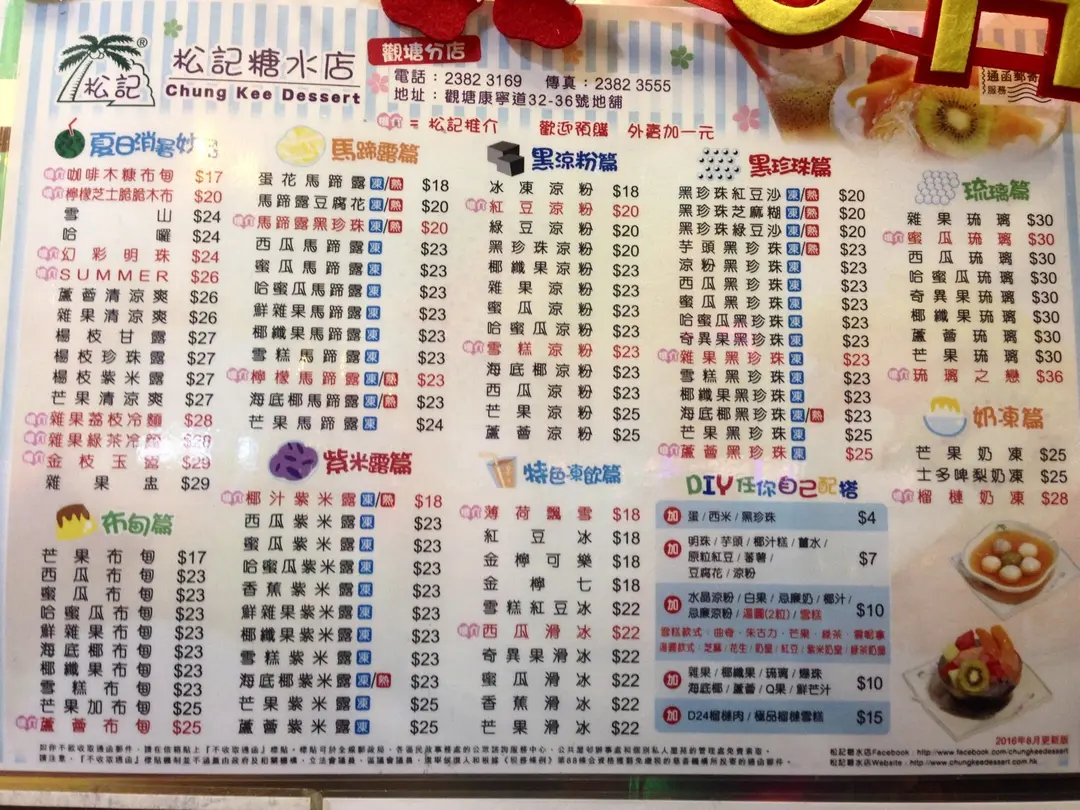 松記
®
松記糖水店
Chung Kee Dessert
觀塘分店
電話：2382 3169 傳真：2382 3555
地址：觀塘康寧道32-36號地舖
通函郵寄
服務
推介 = 松記推介 歡迎預購 外賣加一元
夏日消暑妙
推介 咖啡木糠布甸 $17
推介 檸檬芝士脆脆木布 $20
雪山 $24
哈囉 $24
推介 幻彩明珠 $24
推介 SUMMER $26
蘆薈清涼爽 $26
雜果清涼爽 $26
楊枝甘露 $27
楊枝珍珠露 $27
楊枝紫米露 $27
芒果清涼爽 $27
推介 雜果荔枝冷麵 $28
推介 雜果綠茶冷麵 $28
推介 金枝玉露 $29
雜果盅 $29
布甸篇
芒果布甸 $17
西瓜布甸 $23
蜜瓜布甸 $23
哈蜜瓜布甸 $23
鮮雜果布甸 $23
海底椰布甸 $23
椰纖果布甸 $23
雪糕布甸 $23
芒果加布甸 $25
推介 蘆薈布甸 $25
馬蹄露篇
蛋花馬蹄露 凍/熱 $18
馬蹄露豆腐花 凍/熱 $20
推介 馬蹄露黑珍珠 凍/熱 $20
西瓜馬蹄露 凍 $23
蜜瓜馬蹄露 凍 $23
哈蜜瓜馬蹄露 凍 $23
鮮雜果馬蹄露 凍 $23
椰纖果馬蹄露 凍 $23
雪糕馬蹄露 凍 $23
推介 檸檬馬蹄露 凍/熱 $23
海底椰馬蹄露 凍/熱 $23
芒果馬蹄露 凍 $24
紫米露篇
推介 椰汁紫米露 凍/熱 $18
西瓜紫米露 凍 $23
蜜瓜紫米露 凍 $23
哈蜜瓜紫米露 凍 $23
香蕉紫米露 凍 $23
鮮雜果紫米露 凍 $23
椰纖果紫米露 凍 $23
雪糕紫米露 凍 $23
海底椰紫米露 凍/熱 $23
芒果紫米露 凍 $25
蘆薈紫米露 凍 $25
黑涼粉篇
冰凍涼粉 $18
推介 紅豆涼粉 $20
綠豆涼粉 $20
黑珍珠涼粉 $20
椰纖果涼粉 $23
雜果涼粉 $23
蜜瓜涼粉 $23
哈蜜瓜涼粉 $23
推介 雪糕涼粉 $23
海底椰涼粉 $23
西瓜涼粉 $23
芒果涼粉 $25
蘆薈涼粉 $25
特色凍飲篇
推介 薄荷飄雪 $18
紅豆冰 $18
金檸可樂 $18
金檸七 $18
雪糕紅豆冰 $22
推介 西瓜滑冰 $22
奇異果滑冰 $22
蜜瓜滑冰 $22
香蕉滑冰 $22
芒果滑冰 $22
黑珍珠篇
黑珍珠紅豆沙 凍/熱 $20
黑珍珠芝麻糊 凍/熱 $20
黑珍珠綠豆沙 凍/熱 $20
芋頭黑珍珠 凍/熱 $23
涼粉黑珍珠 凍 $23
西瓜黑珍珠 凍 $23
蜜瓜黑珍珠 凍 $23
哈蜜瓜黑珍珠 凍 $23
奇異果黑珍珠 凍 $23
推介 雜果黑珍珠 凍 $23
雪糕黑珍珠 凍 $23
椰纖果黑珍珠 凍 $23
海底椰黑珍珠 凍/熱 $23
芒果黑珍珠 凍 $25
推介 蘆薈黑珍珠 凍 $25
DIY任你自己配搭
加 蛋/西米/黑珍珠 $4
加 明珠/芋頭/椰汁糕/薑水/
原粒紅豆/蕃薯/
豆腐花/涼粉 $7
加 水晶涼粉/白果/忌廉奶/椰汁/
忌廉涼粉/湯圓(2粒)/雪糕 $10
雪糕款式：曲奇、朱古力、芒果、綠茶、雲呢拿
湯圓款式：芝麻/花生/奶皇/紅豆/紫米奶皇/綠茶奶皇
加 雜果/椰纖果/琉璃/爆珠
海底椰/蘆薈/Q果/鮮芒汁 $10
加 D24榴槤肉/極品榴槤雪糕 $15
琉璃篇
雜果琉璃 $30
推介 蜜瓜琉璃 $30
西瓜琉璃 $30
哈蜜瓜琉璃 $30
奇異果琉璃 $30
椰纖果琉璃 $30
蘆薈琉璃 $30
芒果琉璃 $30
推介 琉璃之戀 $36
奶凍篇
芒果奶凍 $25
士多啤梨奶凍 $25
推介 榴槤奶凍 $28
2016年8月更新版
如你不欲收取通函郵件，請在信箱貼上『不收取通函』標貼。標貼可於全線郵政局、各區民政事務處的公眾諮詢服務中心、公共屋邨辦事處和個別私人屋苑的管理處免費索取。
請注意，『不收取通函』標貼機制並不涵蓋由政府及相關機構、立法會議員、區議會議員、選舉候選人和根據《稅務條例》第88條合資格獲豁免繳稅的慈善機構所投寄的通函郵件。
松記糖水店Facebook：http://www.facebook.com/chungkeedessert
松記糖水店Website：http://www.chungkeedessert.com.hk